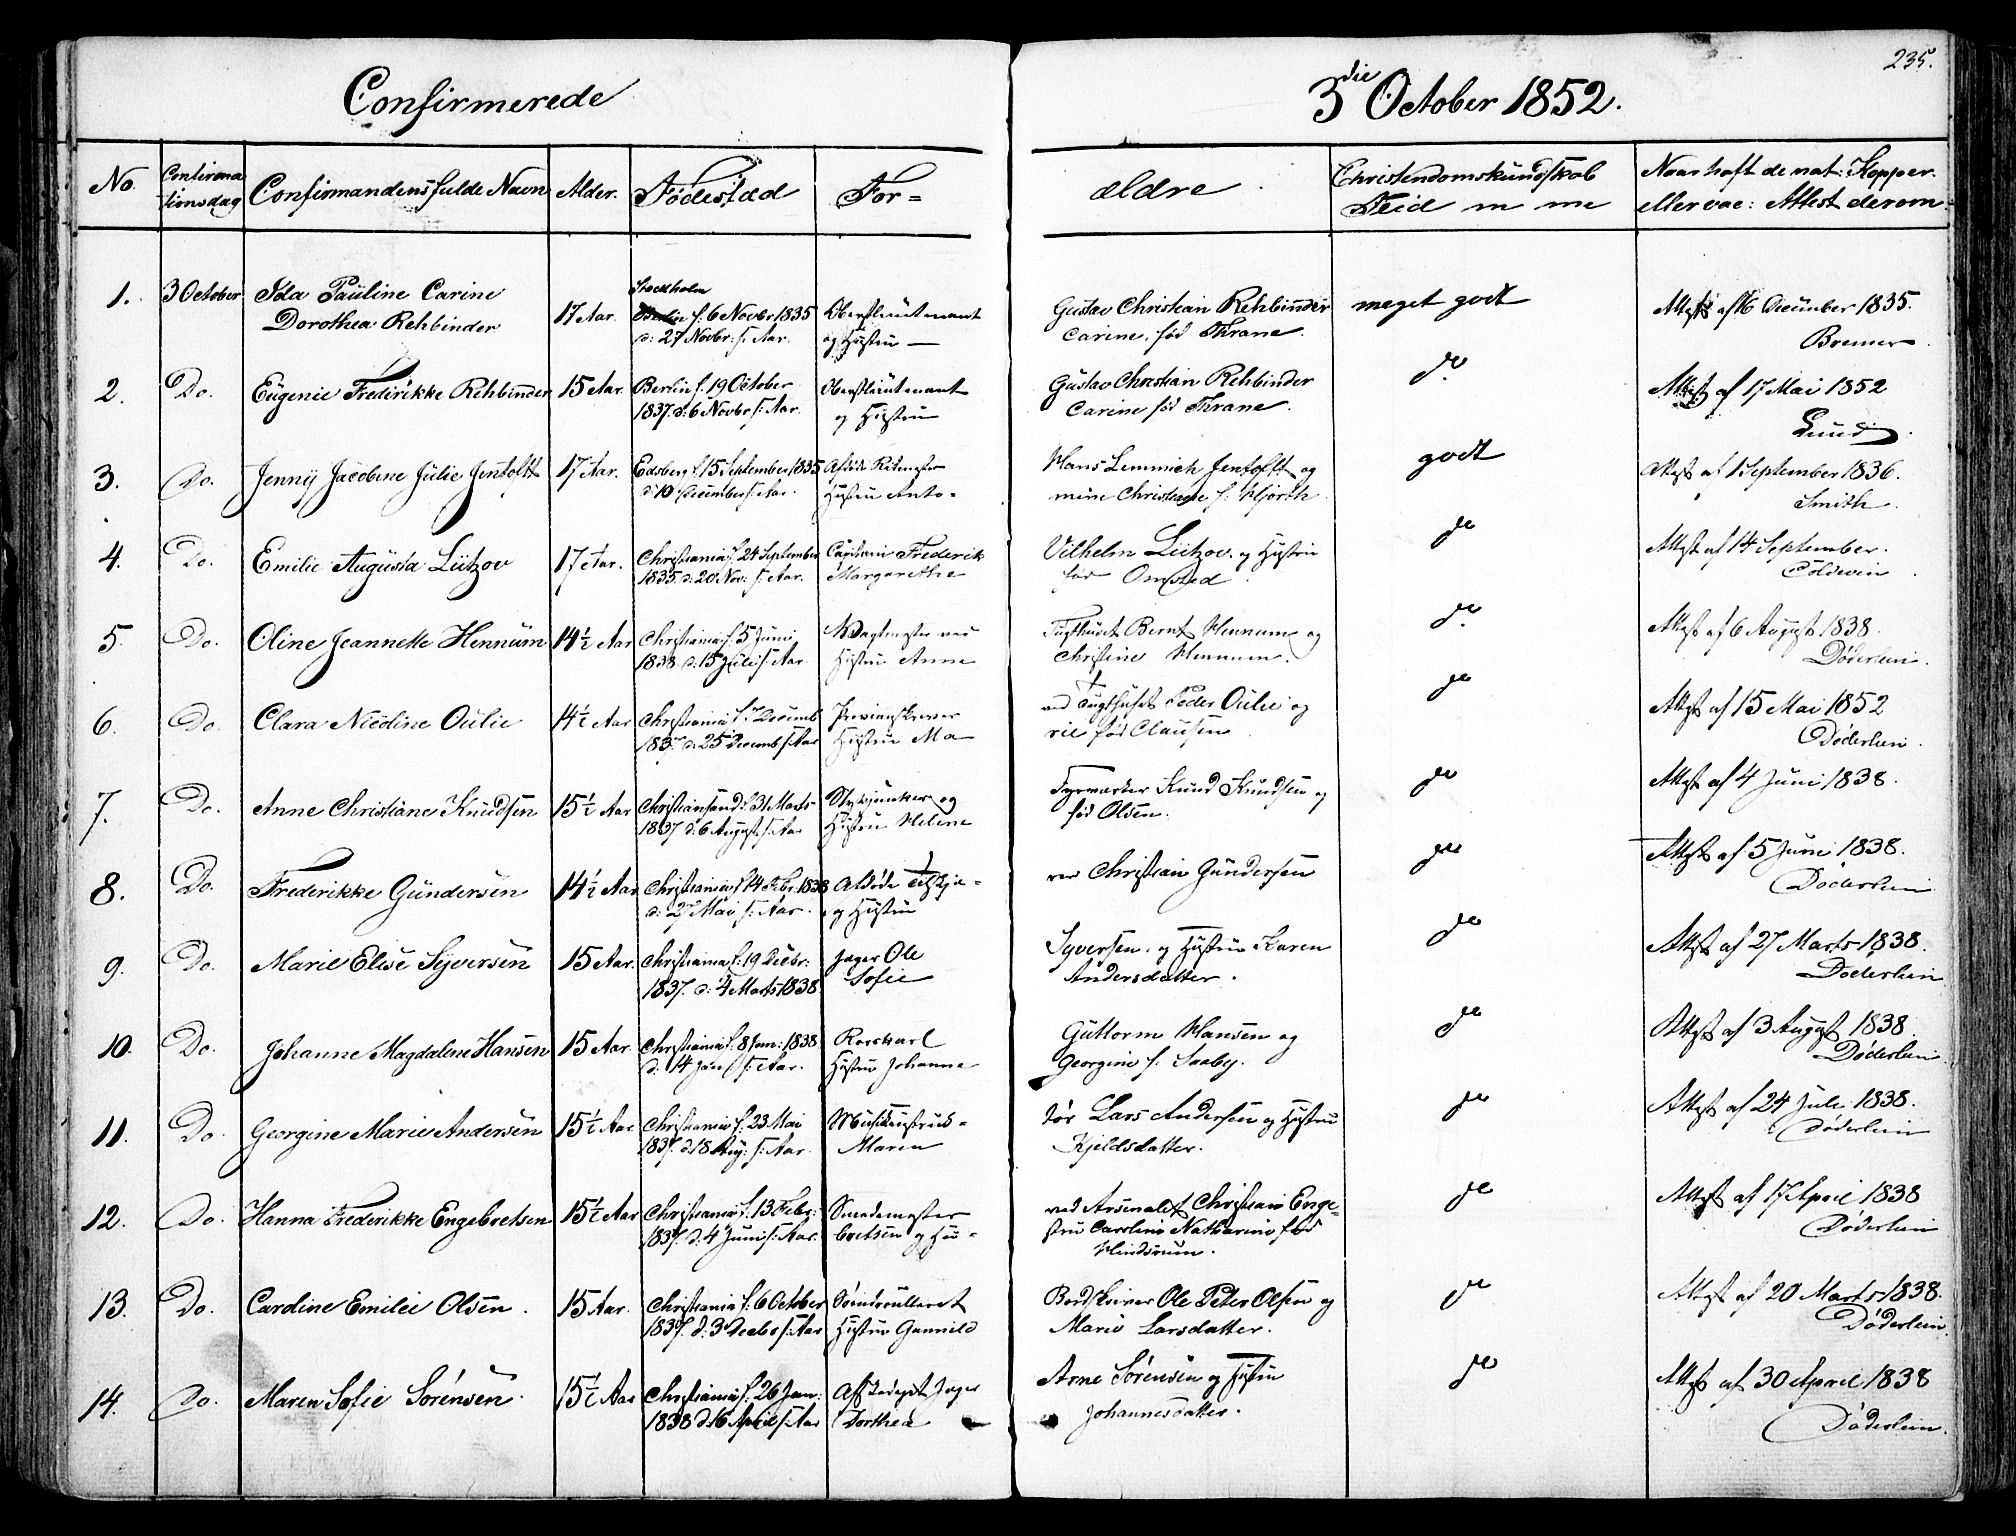 235.
Confirmerede
3die October 1852.
No.
Confirma
tionsdag
Confirmandens fulde Navn
Alder.
Födestæd
For=
ældre
Christendomskundskab
Fleid
Naar haft de nat: Kopper
eller vac: Attest derom
1.
3 October
Ida Pauline Carine
Dorothea Rehbinder
17 Aar.
Stockholm
f: 6 Novbr 1835
d: 27 Novbr: s: Aar.
Oberstlieutenant
og Hustru
Gustav Christian Rehbinder
Carine. fød Thrane.
meget godt
Attest af 16 December 1835.
Bremer
2.
Do.
Eugenie Frederikke Rehbinder
15 Aar.
Berlin f. 19 October
1837. d. 6 Novbr s: Aar.
Oberstlieutenant
og Hustru
Gustav Christian Rehbinder
Carine fød Thrane.
do.
Attest af 17 Mai 1852
Lund
3.
Do.
Jenny Jacobine Julie Jentoftt
17 Aar.
Edsberg f. 15 September 1835
d. 10 December s: Aar.
Afdøde Ritmester
Hustru Anto-
Hans Lemmich Jentoftt og
mine Christiane f: Hjorth
godt
Attest af 1 September 1836.
Smith
4.
Do.
Emilie Augusta Lützov
17 Aar.
Christiania f. 24 September
1835 d. 20 Nov: s: Aar.
Capitain Frederik
Margarethe
Vilhelm Lützov. og Hustru
fød Omsted
do
Attest af 14 September.
Coldevin
5.
Do.
Oline Jeannette Hennum
14½ Aar
Christiania f. 5 Juni
1838. d. 15 Juli s: Aar
Vagtmester ved
Hustru Anne
Tugthuset Bernt Hennum og
Christine Hennum.
do.
Attest af 6 August 1838.
Døderlein.
6.
Do.
Clara Nicoline Oulie
14½ Aar
Christiania f. 7 Decemb
1837 d. 25 Decemb s: Aar
Proviantskriver
Hustru Ma-
ved Tugthuset Peder Oulie og
rie fød Clausen
do
Attest af 15 Mai 1852
Døderlein.
7.
Do.
Anne Christiane Knudsen
15½ Aar
Christiansand f. 31 Marts
1837 d. 6 August s: Aar
Stykjunker og
Hustru Helene
Fyrverker Knud Knudsen og
fød Olsen.
do
Attest af 4 Juni 1838.
8.
Do.
Frederikke Gundersen
14½ Aar
Christiania f 14 Febr. 1838
d: 27 Mai s: Aar.
Afdøde
og Hustru
ver Christian Gundersen
do
Attest af 5 Juni 1838.
Døderlein
9.
Do.
Marie Elise Syversen
15 Aar.
Christiania f. 19 Decbr:
1837. d: 4 Marts 1838.
Jæger Ole
Sofie
Syversen. og Hustru Karen
Andersdatter.
do
Attest af 27 Marts 1838.
Døderlein
10.
Do.
Johanne Magdalene Hansen
15 Aar.
Christiania f. 8 Jan: 1838
d. 14 Jan s: Aar.
Rorskarl
Hustru Johanne
Guttorm Hansen og
Georgine f. Saaby.
do
Attest af 3 August 1838.
Døderlein
11.
Do.
Georgine Marie Andersen
15½ Aar
Christiania f. 23 Mai
1837. d. 18 Aug: s: Aar.
Musikinstruk-
Maren
tør Lars Andersen og Hustru
Kjeldsdatter.
do
Attest af 24 Juli 1838.
Døderlein
12.
Do.
Hanna Frederikke Engebretsen
15½ Aar
Christiania f. 13 Febr:
1837. d. 4 Juni s: Aar.
Smedemester
bretsen og Hu-
ved Arsenalet Christian Enge-
stru Caroline Nathanie fød
Hindsrum.
do
Attest af 17 April 1838
Døderlein
13.
Do.
Caroline Emilie Olsen.
15 Aar.
Christiania f. 6 October
1837. d. 3 Decbr s: Aar
Søindrulleret
Hustru Gunnild
Bordskriver Ole Peter Olsen og
Marie Larsdatter.
do
Attest af 20 Marts 1838.
Døderlein.
14.
Do.
Maren Sofie Sørensen.
15½ Aar
Christiania f. 26 Jan:
1838 d. 16 April s: Aar
Afskediget Jæger
Dorthea
Arne Sørensen og Hustru
Johannesdatter.
do
Attest af 30 April 1838
Døderlein.